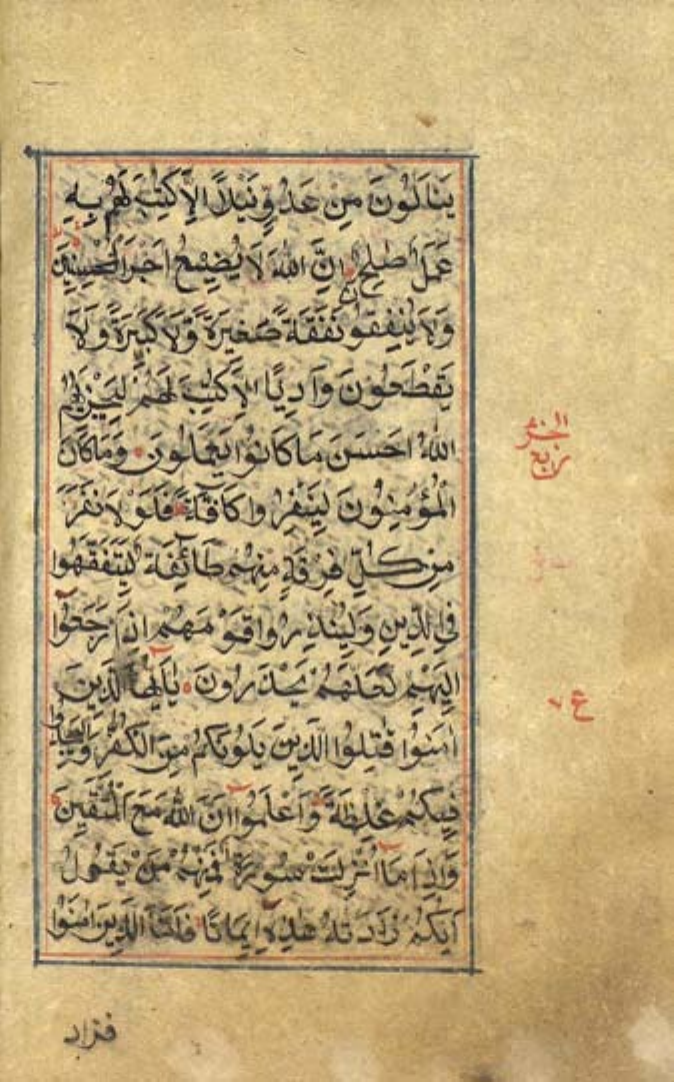 يَنَالُونَ مِنْ عَدُوٍّ نَيْلًا اِلَّا كُتِبَ لَهُمْ بِهِ
عَمَلٌ صٰلِحٌ اِنَّ اللّٰهَ لَا يُضِيْعُ اَجْرَ الْمُحْسِنِيْنَ
وَلَا يُنْفِقُوْنَ نَفَقَةً صَغِيْرَةً وَّلَا كَبِيْرَةً وَّلَا
يَقْطَعُوْنَ وَادِيًا اِلَّا كُتِبَ لَهُمْ لِيَجْزِيَهُمُ
اللّٰهُ اَحْسَنَ مَا كَانُوْا يَعْمَلُوْنَ وَمَا كَانَ
الْمُؤْمِنُوْنَ لِيَنْفِرُوْا كَافَّةً فَلَوْلَا نَفَرَ
مِنْ كُلِّ فِرْقَةٍ مِنْهُمْ طَائِفَةٌ لِيَتَفَقَّهُوْا
فِي الدِّيْنِ وَلِيُنْذِرُوْا قَوْمَهُمْ اِذَا رَجَعُوْا
اِلَيْهِمْ لَعَلَّهُمْ يَحْذَرُوْنَ يٰاَيُّهَا الَّذِيْنَ
اٰمَنُوْا قٰتِلُوا الَّذِيْنَ يَلُوْنَكُمْ مِنَ الْكُفَّارِ وَلْيَجِدُوْا
فِيْكُمْ غِلْظَةً وَّاعْلَمُوْا اَنَّ اللّٰهَ مَعَ الْمُتَّقِيْنَ
وَاِذَا مَا اُنْزِلَتْ سُوْرَةٌ فَمِنْهُمْ مَنْ يَقُوْلُ
اَيُّكُمْ زَادَتْهُ هٰذِهِ اِيْمَانًا فَاَمَّا الَّذِيْنَ اٰمَنُوْا
فزاد
ربع
ع